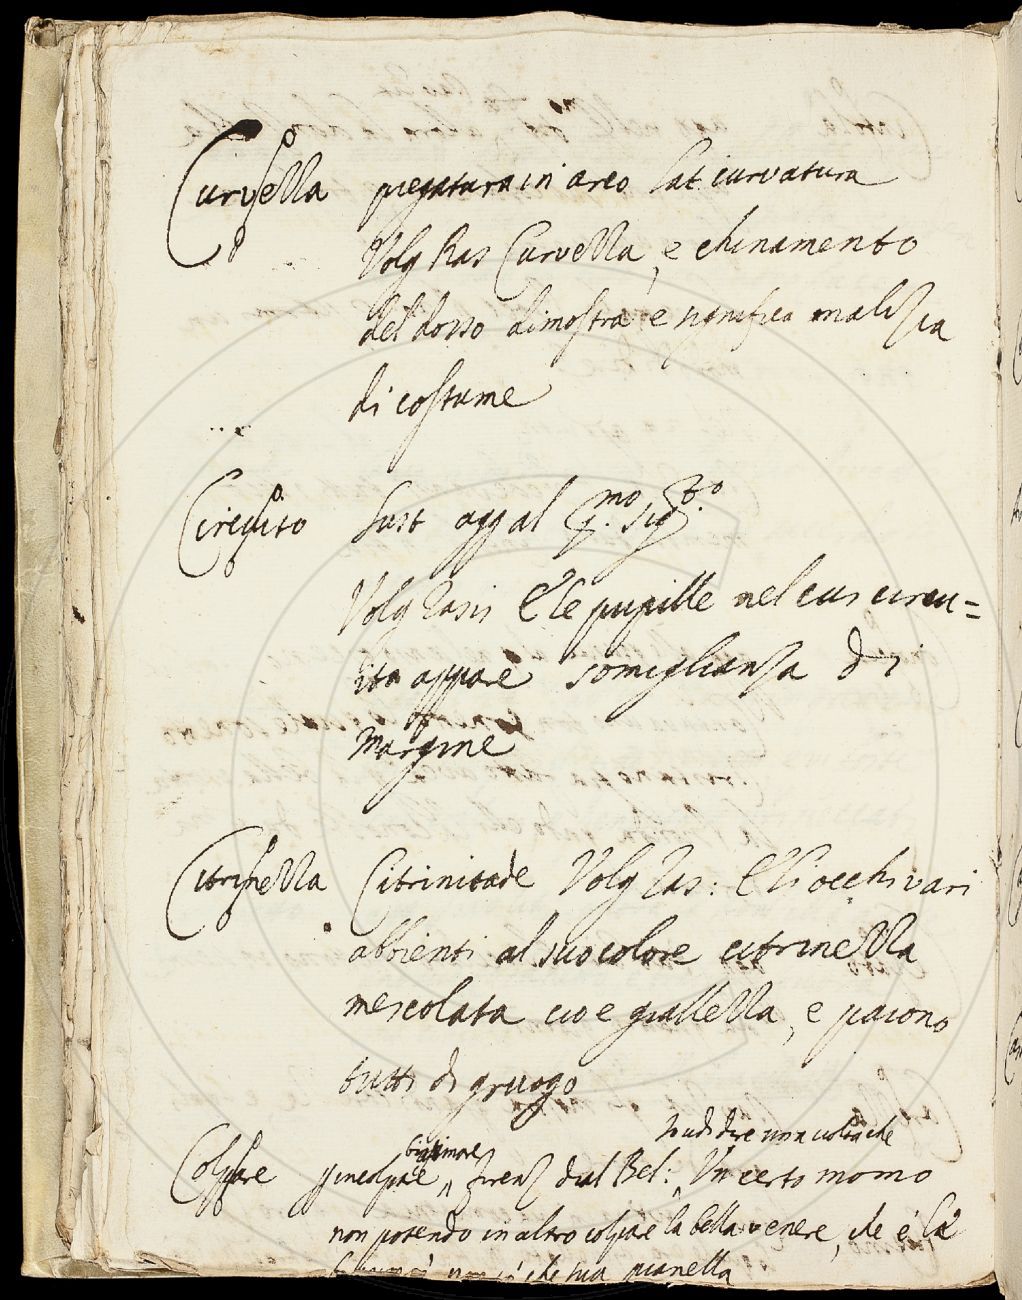 Curvezza piegatura in arco lat curvatura
Volg Ras Curvezza, e chinamento
del dosso dimostra e significa malizia
di costume
Circuito sust agg al
Volg Rasis E le pupille nel cus circu=
ita appare somiglianza di
margine
Citrinezza Citrinitade Volg Ras: E li occhi vari
abbienti al suo colore citrinezza
mescolata cioe giallezza, e paiono
tutti di gruogo
biasimare Io udi dire una volta che
Colpare p incolpare Firenz dial Bel: Un certo momo
non potendo in altro colpare la bella venere, che è la
che sua pianella